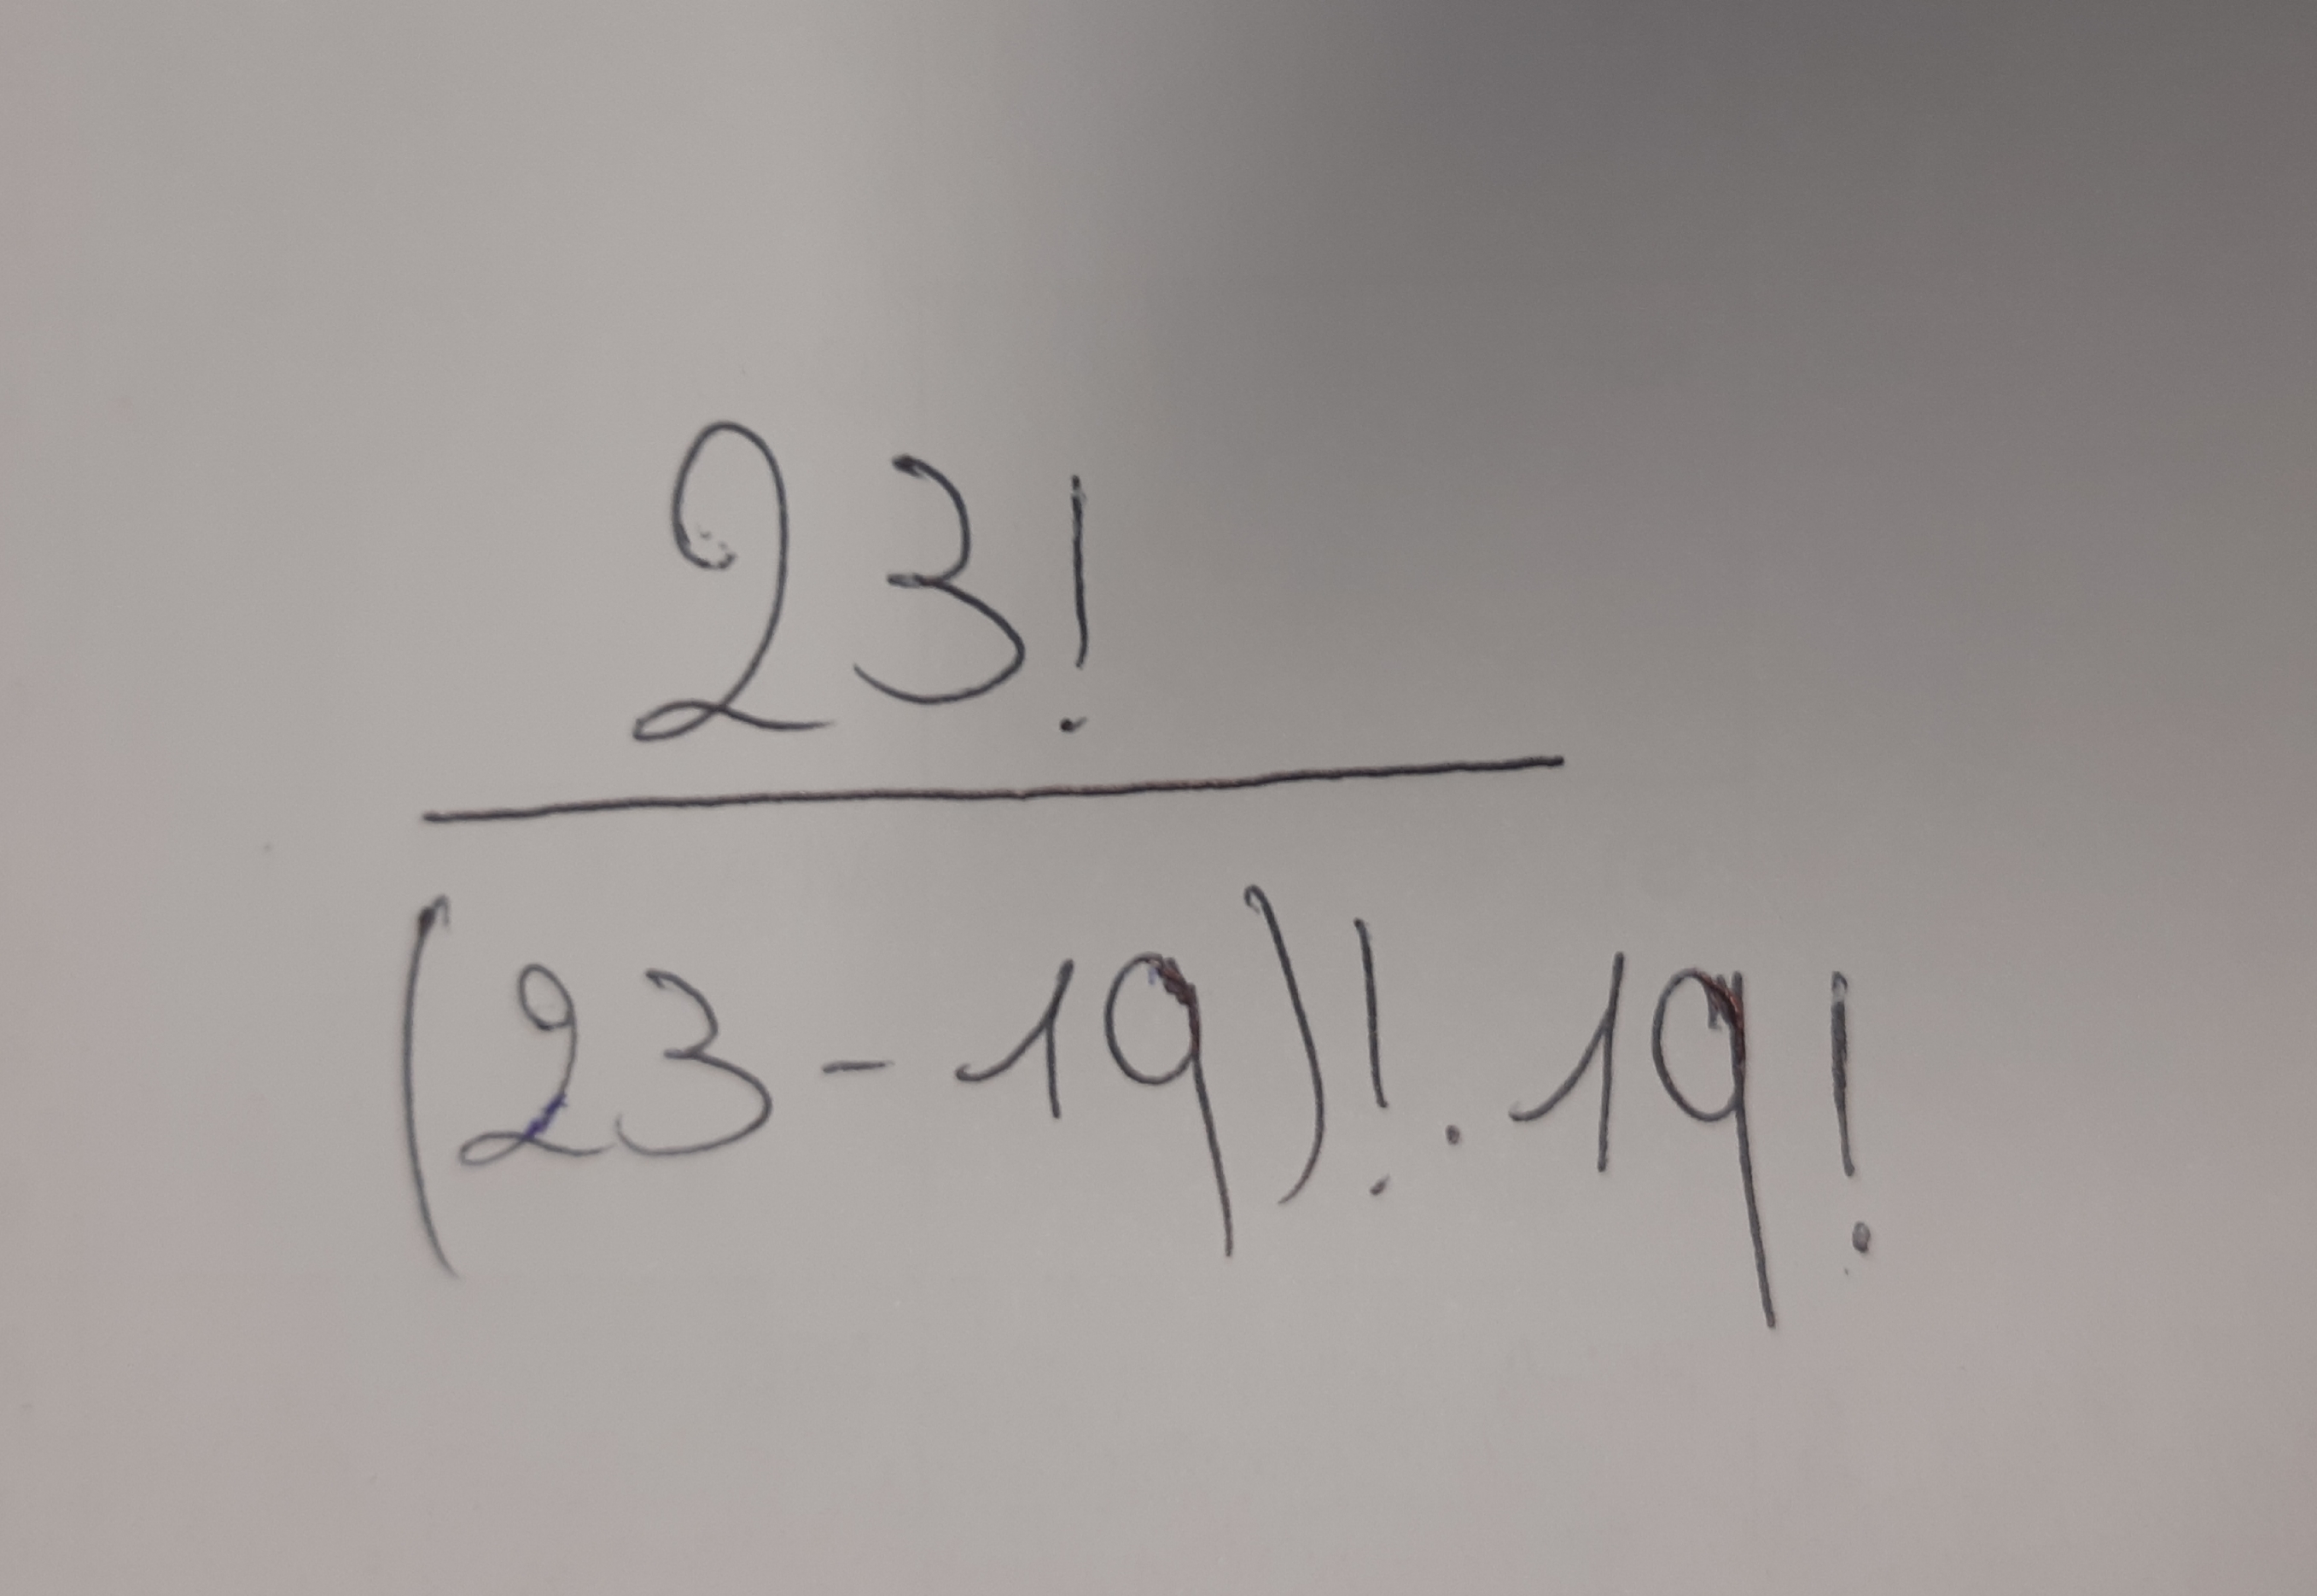 23!
(23-19)!.19!